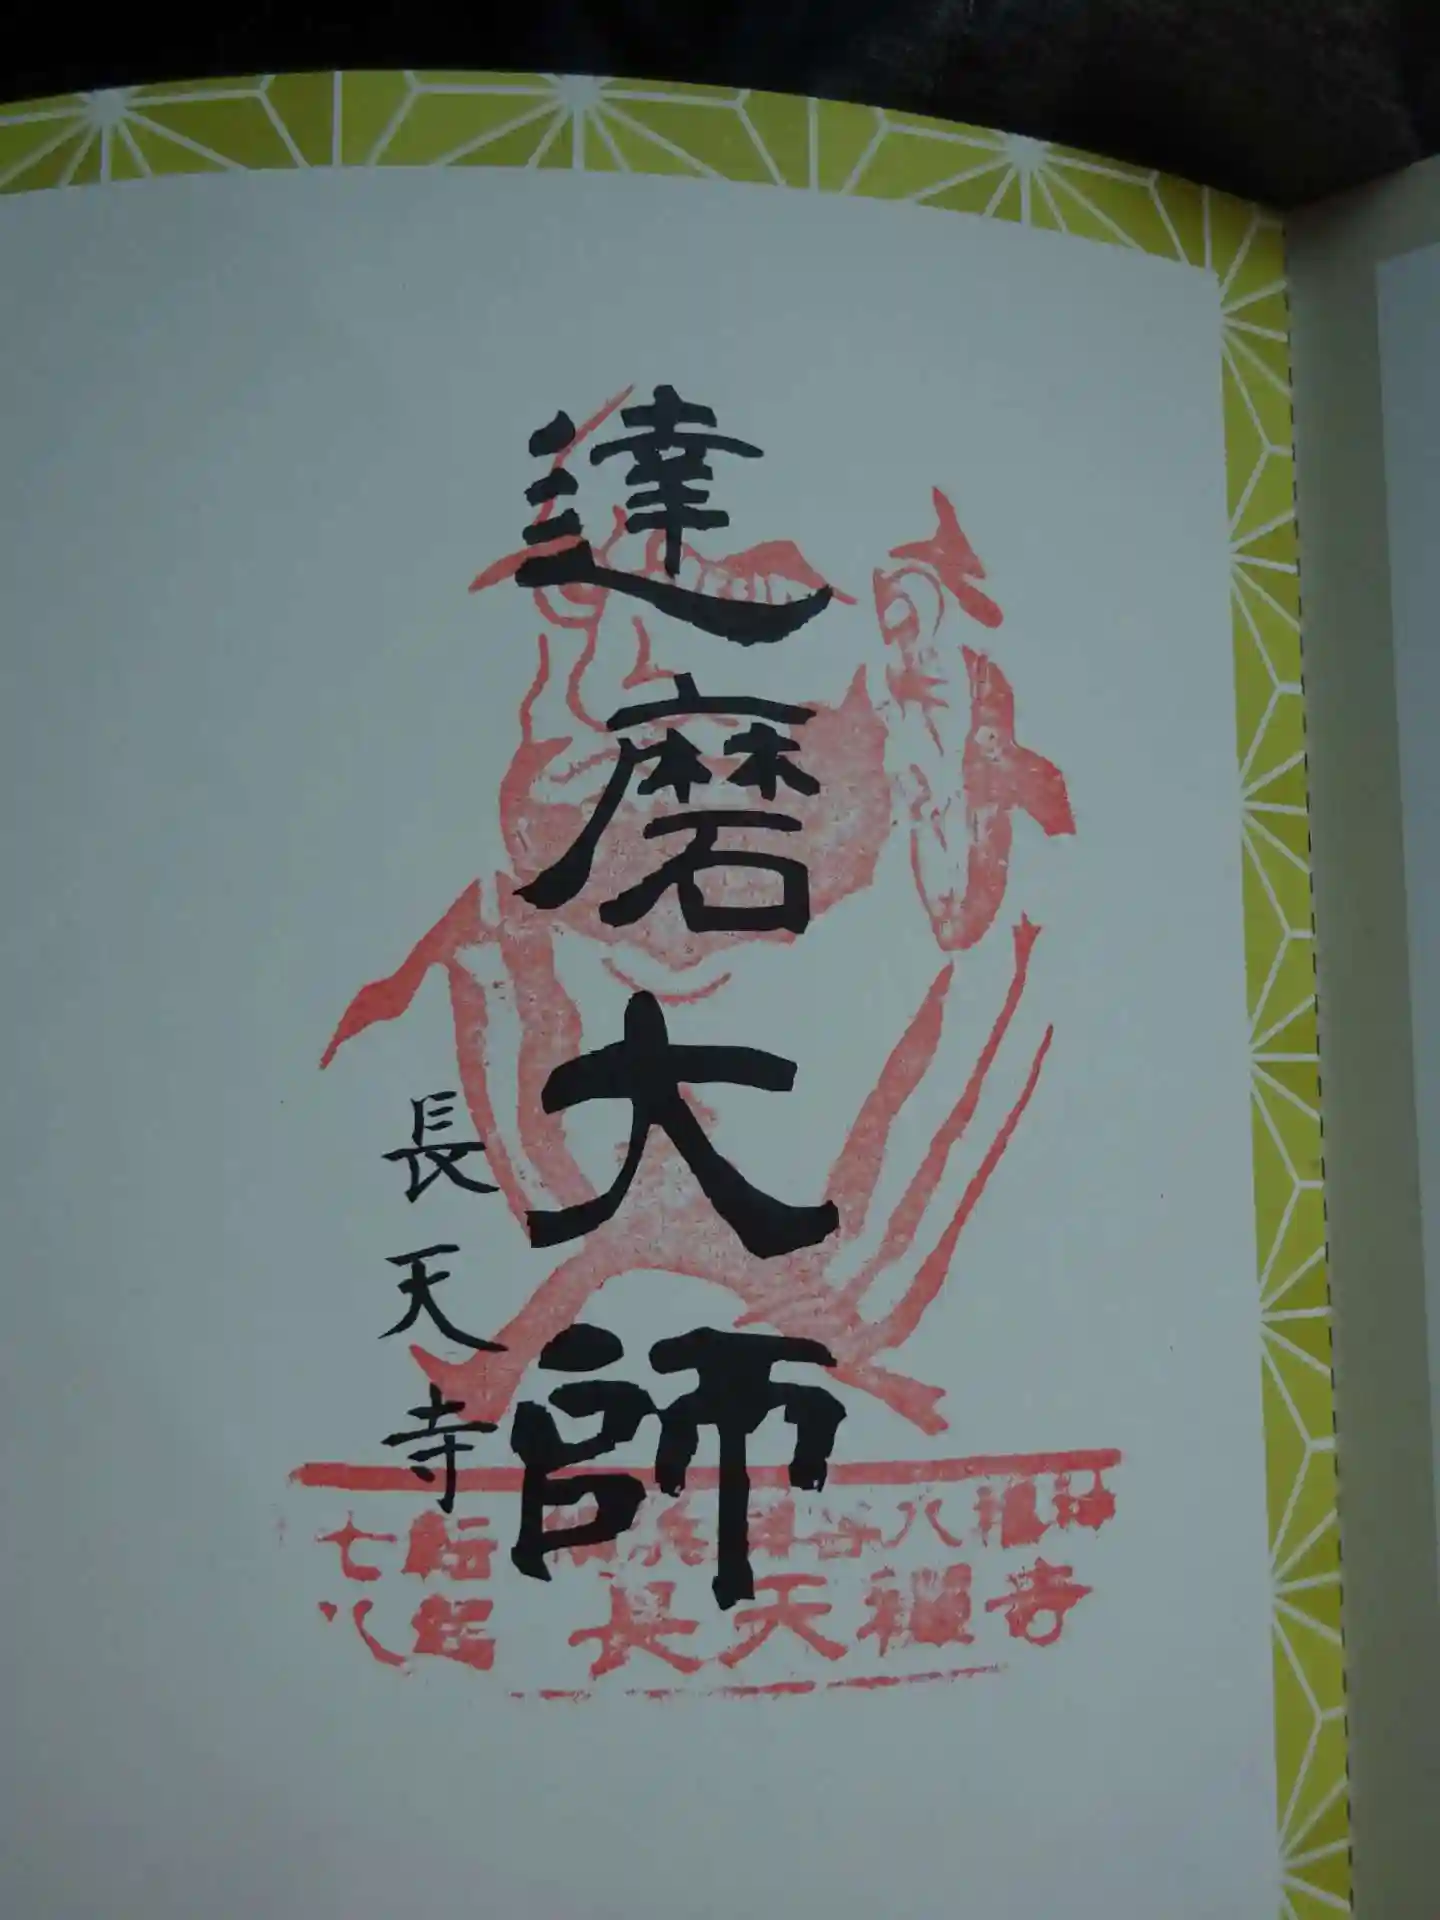 達磨大師
長天寺
七転
八起
長天禅寺